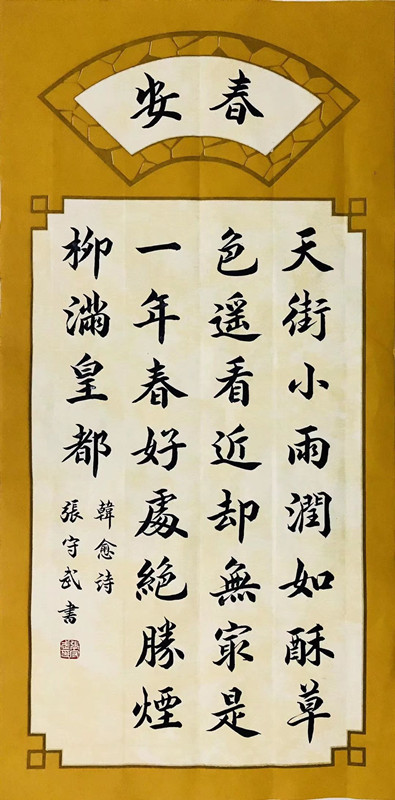 春安
天街小雨潤如酥草
色遥看近却無冣是
一年春好處絕勝煙
柳滿皇都
韓愈詩
張守武書